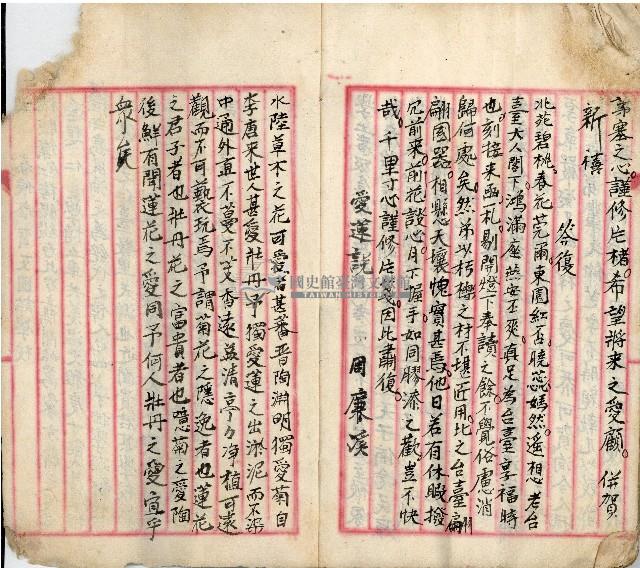 茅塞之心。謹修片楮。希望將來之愛顧。併賀
新禧
答復
北苑碧桃。春花莞爾。東園紅杏。曉蕊嫣然。遙想老台
臺大人閣下。鴻滿座。燕安丕爽。真足為台臺享福時
也。刻接來函札。剔開燈下。奉讀之餘。不覺俗慮消
歸何處矣。然弟以朽櫟之材。不堪匠用。比之台臺翩
翩國器。相懸天壤。愧實甚焉。他日若有休暇。撥
冗前來。前花談心。月下握手。如同膠漆之歡。豈不快
哉。千里寸心。謹修片悉。因此肅復。
愛蓮說 周廉溪
水陸草木之花可愛者甚蕃晉陶淵明獨愛菊自
李唐來世人甚愛牡丹予獨愛蓮之出淤泥而不染
中通外直不蔓不芝香遠益清亭々净植可遠
觀而不可藝玩焉予謂菊花之隱逸者也蓮花
之君子者也牡丹花之富貴者也噫菊之愛陶
後鮮有聞蓮花之愛同予何人牡丹之愛宜乎
衆矣
國史館臺灣文獻館
TAIWAN HISTORICA